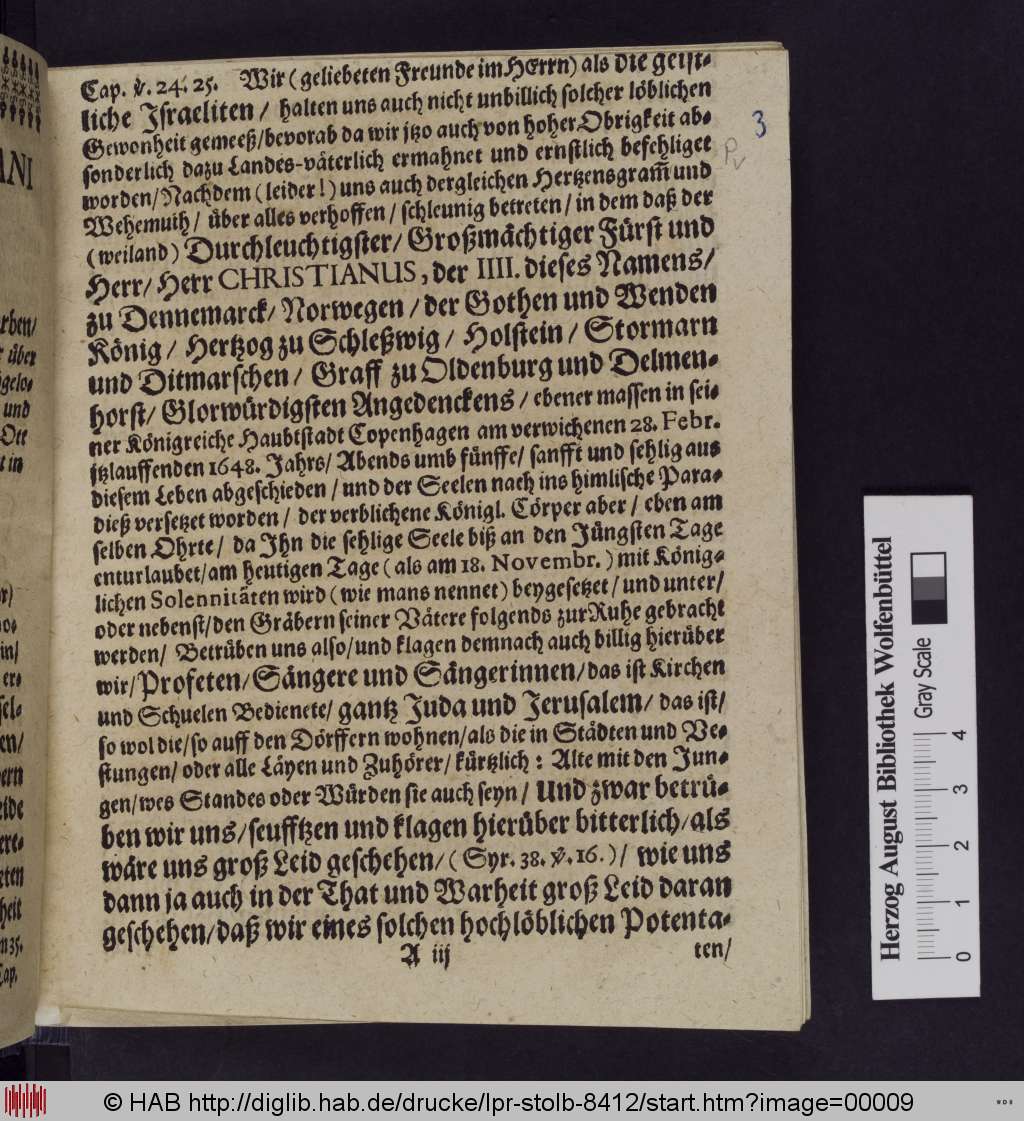 Cap. ℣. 24. 25. Wir (geliebeten Freunde im HErrn) als die geist-
liche Israeliten / halten uns auch nicht unbillich solcher löblichen
Gewonheit gemeeß/bevorab da wir jtzo auch von hoher Obrigkeit ab-
sonderlich dazu Landes-väterlich ermahnet und ernstlich befehliget
worden/Nachdem (leider!) uns auch dergleichen Hertzensgram̃ und
Wehemuth/ über alles verhoffen / schleunig betreten / in dem daß der
(weiland) Durchleuchtigster/ Großmächtiger Fürst und
Herr/ Herr CHRISTIANUS, der IIII. dieses Namens/
zu Dennemarck/ Norwegen / der Gothen und Wenden
König / Hertzog zu Schleßwig / Holstein / Stormarn
und Ditmarschen / Graff zu Oldenburg und Delmen-
horst/ Glorwürdigsten Angedenckens / ebener massen in sei-
ner Königreiche Haubtstadt Copenhagen am verwichenen 28. Febr.
jtzlauffenden 1648. Jahrs/ Abends umb fünffe/ sanfft und sehlig aus
diesem Leben abgeschieden / und der Seelen nach ins himlische Para-
dieß versetzet worden / der verblichene Königl. Cörper aber / eben am
selben Ohrte / da Ihn die sehlige Seele biß an den Jüngsten Tage
enturlaubet/am heutigen Tage (als am 18. Novembr.) mit König-
lichen Solennitäten wird (wie mans nennet) beygesetzet / und unter/
oder nebenst/den Gräbern seiner Vätere folgends zur Ruhe gebracht
werden/ Betrüben uns also/und klagen demnach auch billig hierüber
wir/ Profeten/ Sängere und Sängerinnen/das ist Kirchen
und Schuelen Bedienete/ gantz Juda und Jerusalem/ das ist/
so wol die/so auff den Dörffern wohnen/als die in Städten und Ve-
stungen/ oder alle Läyen und Zuhörer/ kürtzlich: Alte mit den Jun-
gen/wes Standes oder Würden sie auch seyn/ Und zwar betrü-
ben wir uns/seufftzen und klagen hierüber bitterlich/als
wäre uns groß Leid geschehen/(Syr. 38. ℣. 16.)/ wie uns
dann ja auch in der That und Warheit groß Leid daran
geschehen/daß wir eines solchen hochlöblichen Potenta-
A iij ten/
3
ANI
rben/
über
und
Ott
t in
in/
er-
en/
ern
eide
ere-
eten
heit
Cap.
Herzog August Bibliothek Wolfenbüttel
Gray Scale
0 1 2 3 4
© HAB http://diglib.hab.de/drucke/lpr-stolb-8412/start.htm?image=00009